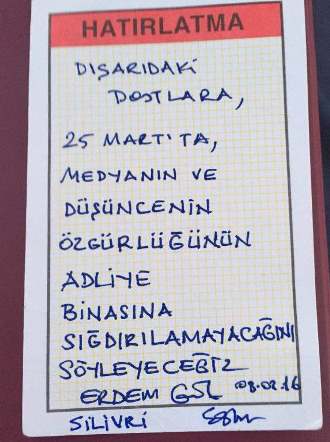 HATIRLATMA
DIŞARIDAKİ
DOSTLARA,
25 MART'TA,
MEDYANIN VE
DÜŞÜNCENİN
ÖZGÜRLÜĞÜNÜN
ADLİYE
BİNASINA
SIĞDIRILAMAYACAĞINI
SÖYLEYECEĞİZ
ERDEM GÜL 08.02.16
SİLİVRİ